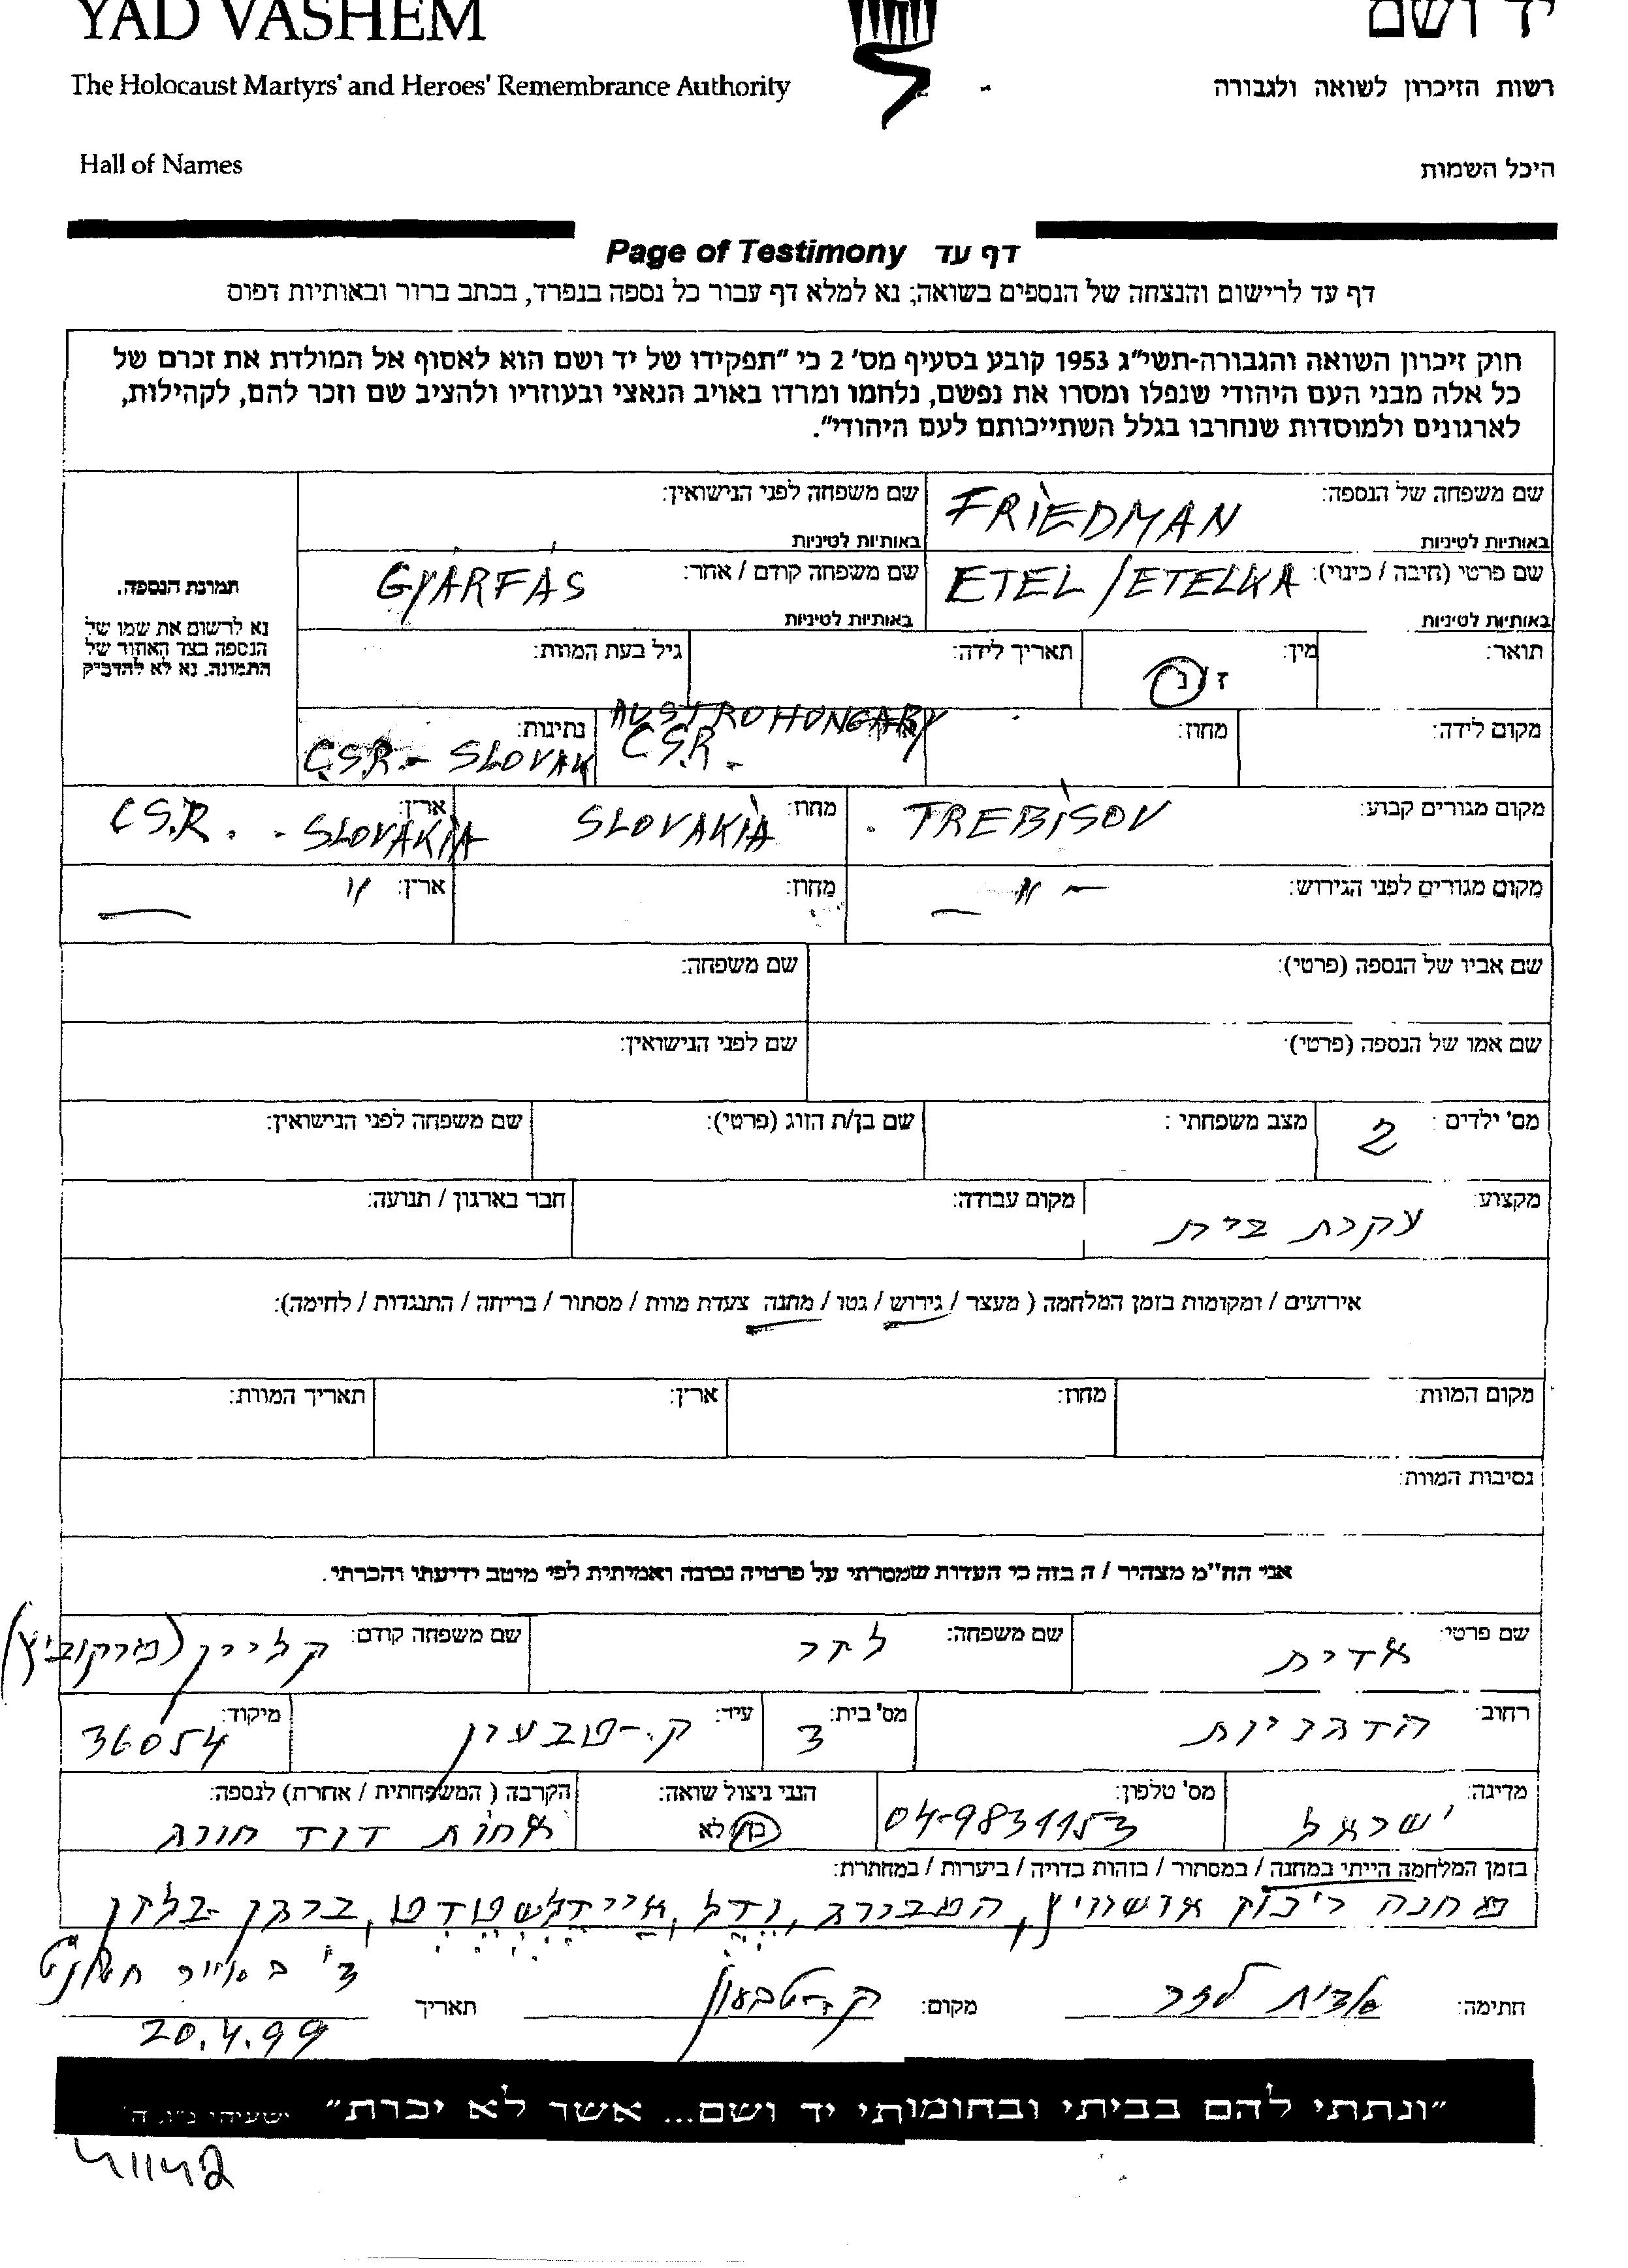 YAD VASHEM יד ושם
The Holocaust Martyrs' and Heroes' Remembrance Authority רשות הזיכרון לשואה ולגבורה
Hall of Names היכל השמות
Page of Testimony דף עד
דף עד לרישום והנצחה של הנספים בשואה; נא למלא דף עבור כל נספה בנפרד, בכתב ברור ובאותיות דפוס
חוק זיכרון השואה והגבורה-תשי״ג 1953 קובע בסעיף מס' 2 כי ״תפקידו של יד ושם הוא לאסוף אל המולדת את זכרם של
כל אלה מבני העם היהודי שנפלו ומסרו את נפשם, נלחמו ומרדו באויב הנאצי ובעוזריו ולהציב שם וזכר להם, לקהילות,
לארגונים ולמוסדות שנחרבו בגלל השתייכותם לעם היהודי״.
שם משפחה של הנספה: FRIEDMAN שם משפחה לפני הנישואין:
באותיות לטיניות באותיות לטיניות
שם פרטי (חיבה / כינוי): ETEL / ETELKA שם משפחה קודם / אחר: GYÁRFÁS
באותיות לטיניות באותיות לטיניות
תמונת הנספה.
נא לרשום את שמו של
הנספה בצד האחור של
התמונה. נא לא להדביק
תואר: מין: ז / נ תאריך לידה: גיל בעת המוות:
מקום לידה: מחוז: ארץ: AUSTROHUNGARY C.S.R. נתינות: C.S.R. - SLOVAK
מקום מגורים קבוע: TREBISOV מחוז: SLOVAKIA ארץ: SLOVAKIA - C.S.R.
מקום מגורים לפני הגירוש: - 11 - מחוז: ארץ: 11
שם אביו של הנספה (פרטי): שם משפחה:
שם אמו של הנספה (פרטי): שם לפני הנישואין:
מס' ילדים: 2 מצב משפחתי: שם בן/ת הזוג (פרטי): שם משפחה לפני הנישואין:
מקצוע: עקרת בית מקום עבודה: חבר בארגון / תנועה:
אירועים / ומקומות בזמן המלחמה ( מעצר / גירוש / גטו / מחנה צעדת מוות / מסתור / בריחה / התנגדות / לחימה):
מקום המוות: מחוז: ארץ: תאריך המוות:
נסיבות המוות:
אני הח״מ מצהיר / ה בזה כי העדות שמסרתי על פרטיה נכונה ואמיתית לפי מיטב ידיעתי והכרתי.
שם פרטי: אדית שם משפחה: לזר שם משפחה קודם: קליין (מרקוביץ)
רחוב: הדגניות מס' בית: 3 עיר: ק.-טבעון מיקוד: 36054
מדינה: ישראל מס' טלפון: 04-9831153 הנני ניצול שואה: כן / לא הקרבה ( המשפחתית / אחרת) לנספה: אחות דוד חורג
בזמן המלחמה הייתי במחנה / במסתור / בזהות בדויה / ביערות / במחתרת:
מחנה ריכוז אושוויץ, המבורג, ודל, איידלשטדט, ברגן-בלזן
חתימה: אדית לזר מקום: ק. טבעון תאריך ד' באייר תשנ"ט
20.4.99
״ונתתי להם בביתי ובחומותי יד ושם... אשר לא יכרת״ ישעיהו נ״ו, ה'